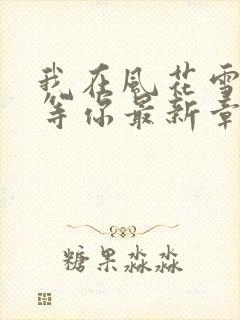 我在風花雪
等你最新章
糖果淼淼